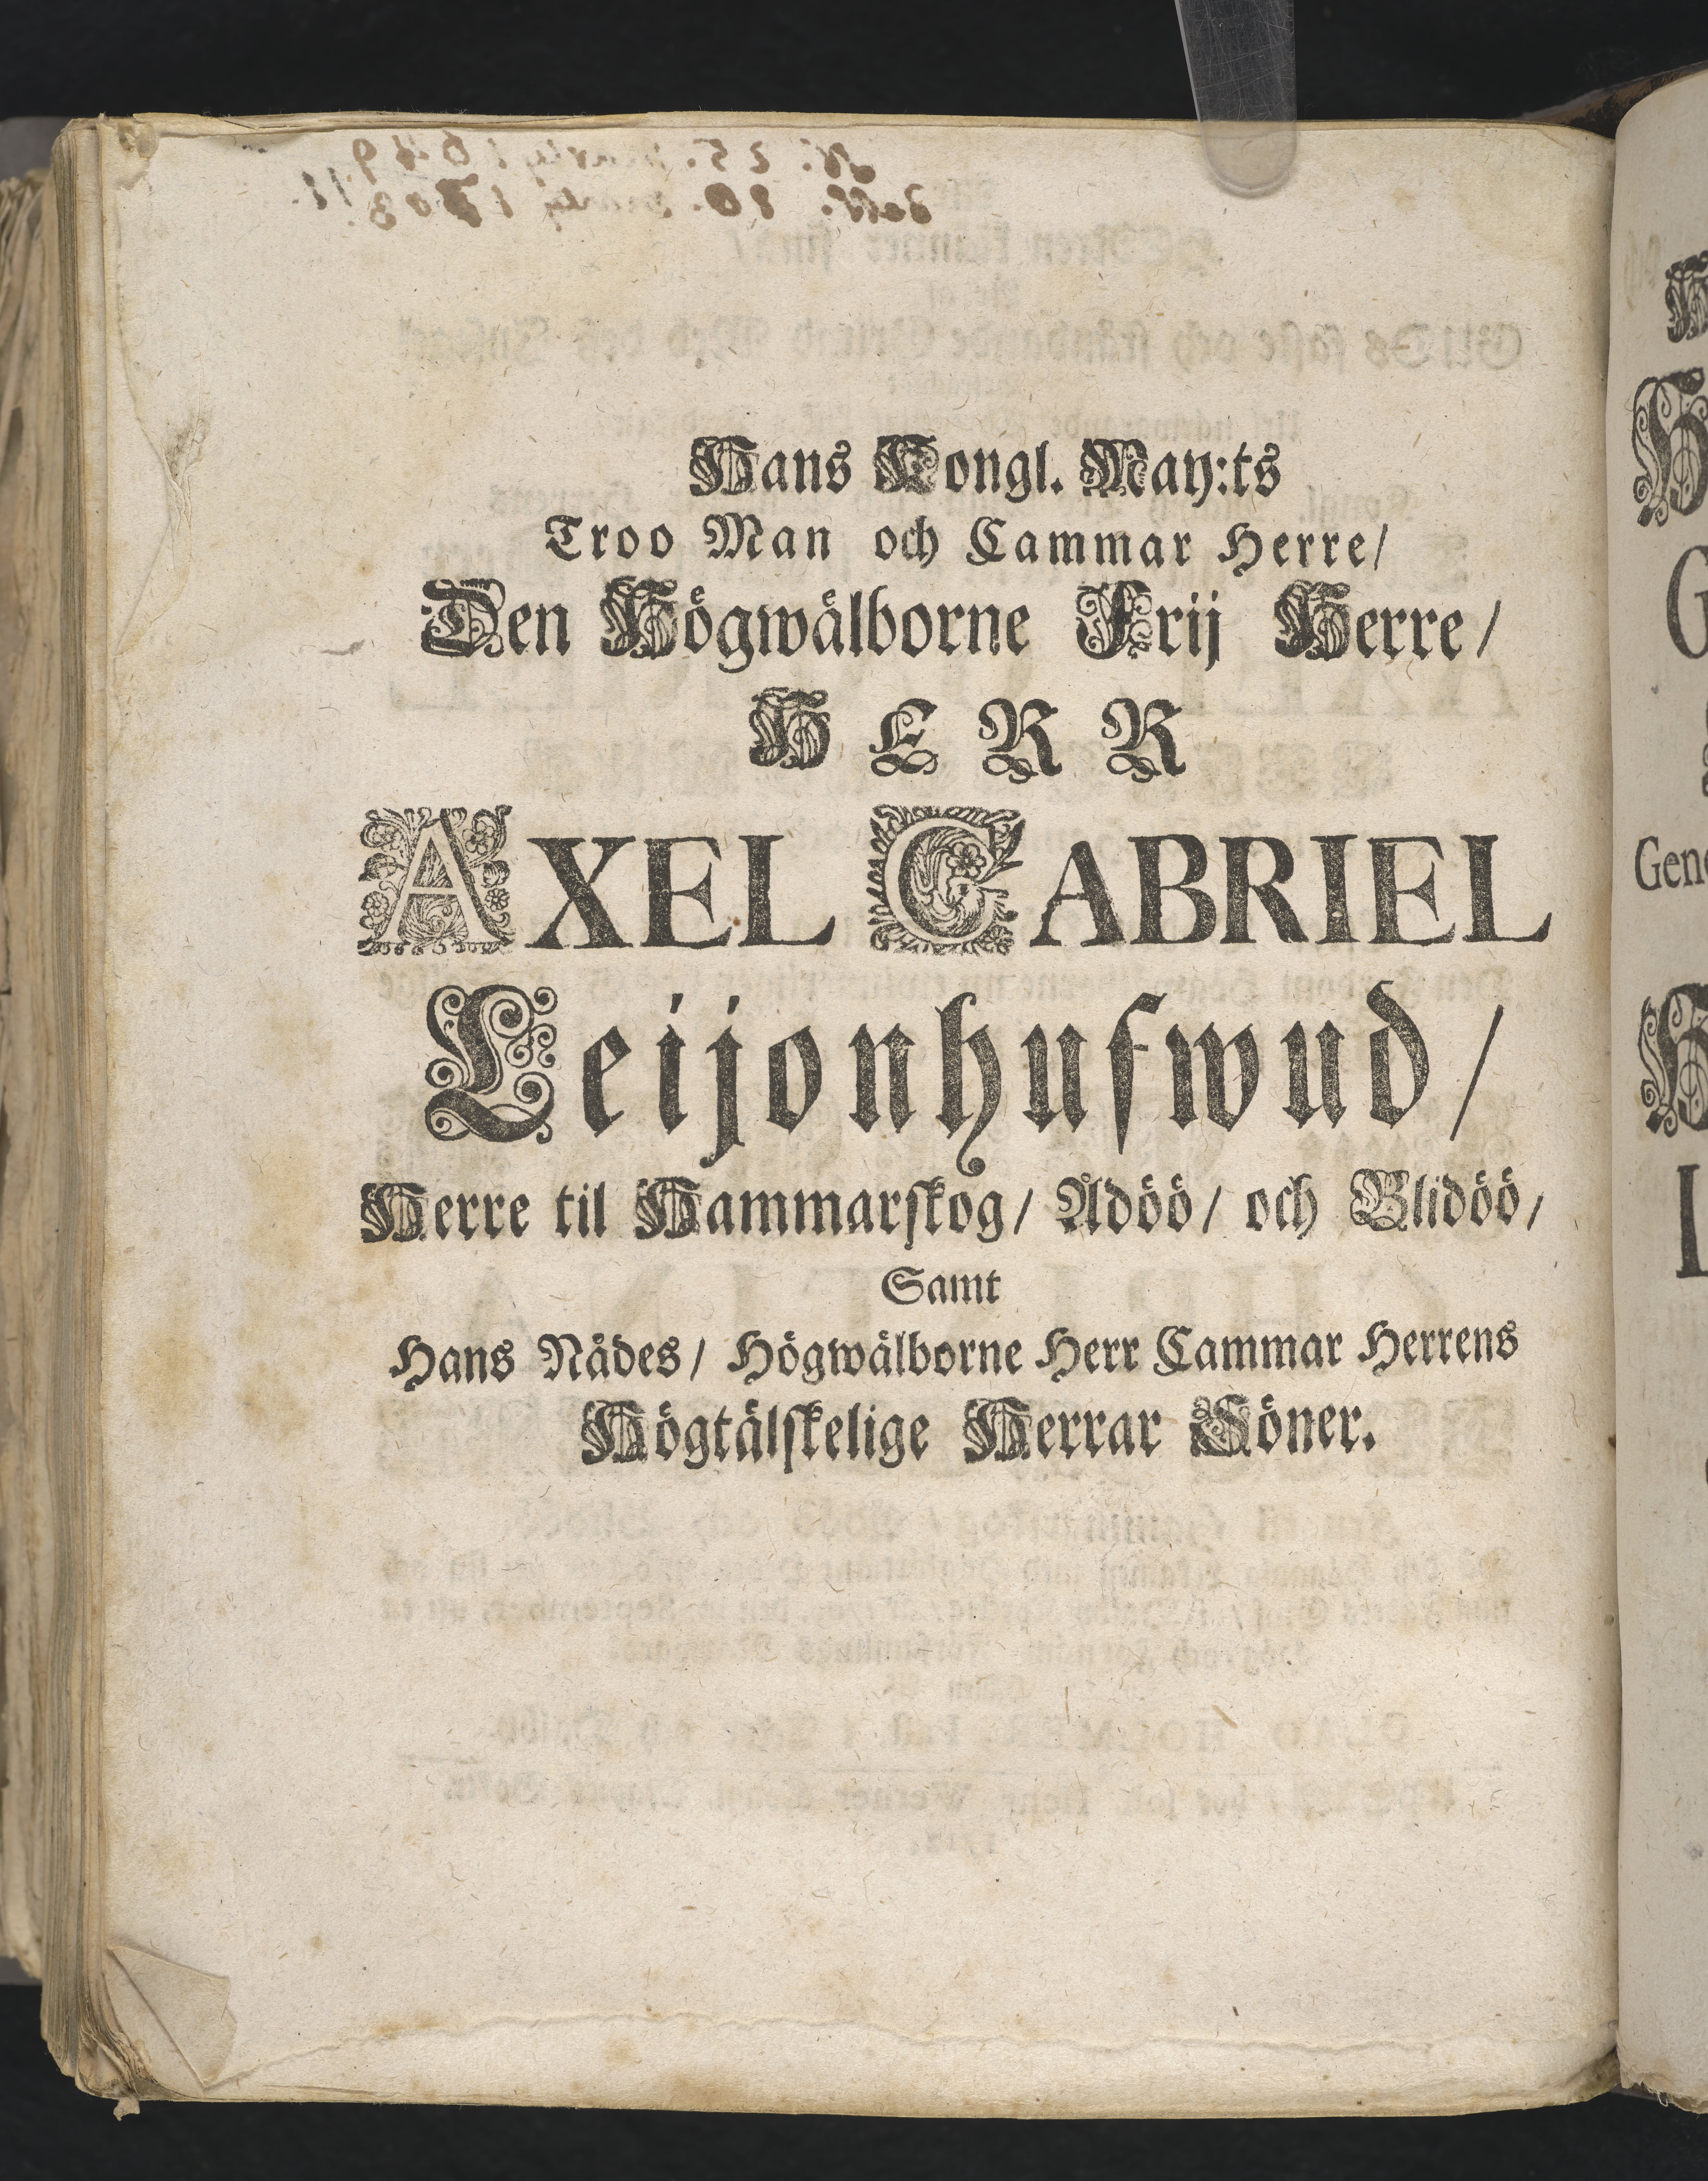 Hans Kongl. May:ts
Troo Man och Cammar Herre/
Den Högwälborne Frij Herre/
HERR
AXEL GABRIEL
Leijonhufwud/
Herre til Hammarskog/ Ådöö/ och Blidöö/
Samt
Hans Nådes/ Högwälborne Herr Cammar Herrens
Högtälskelige Herrar Söner.